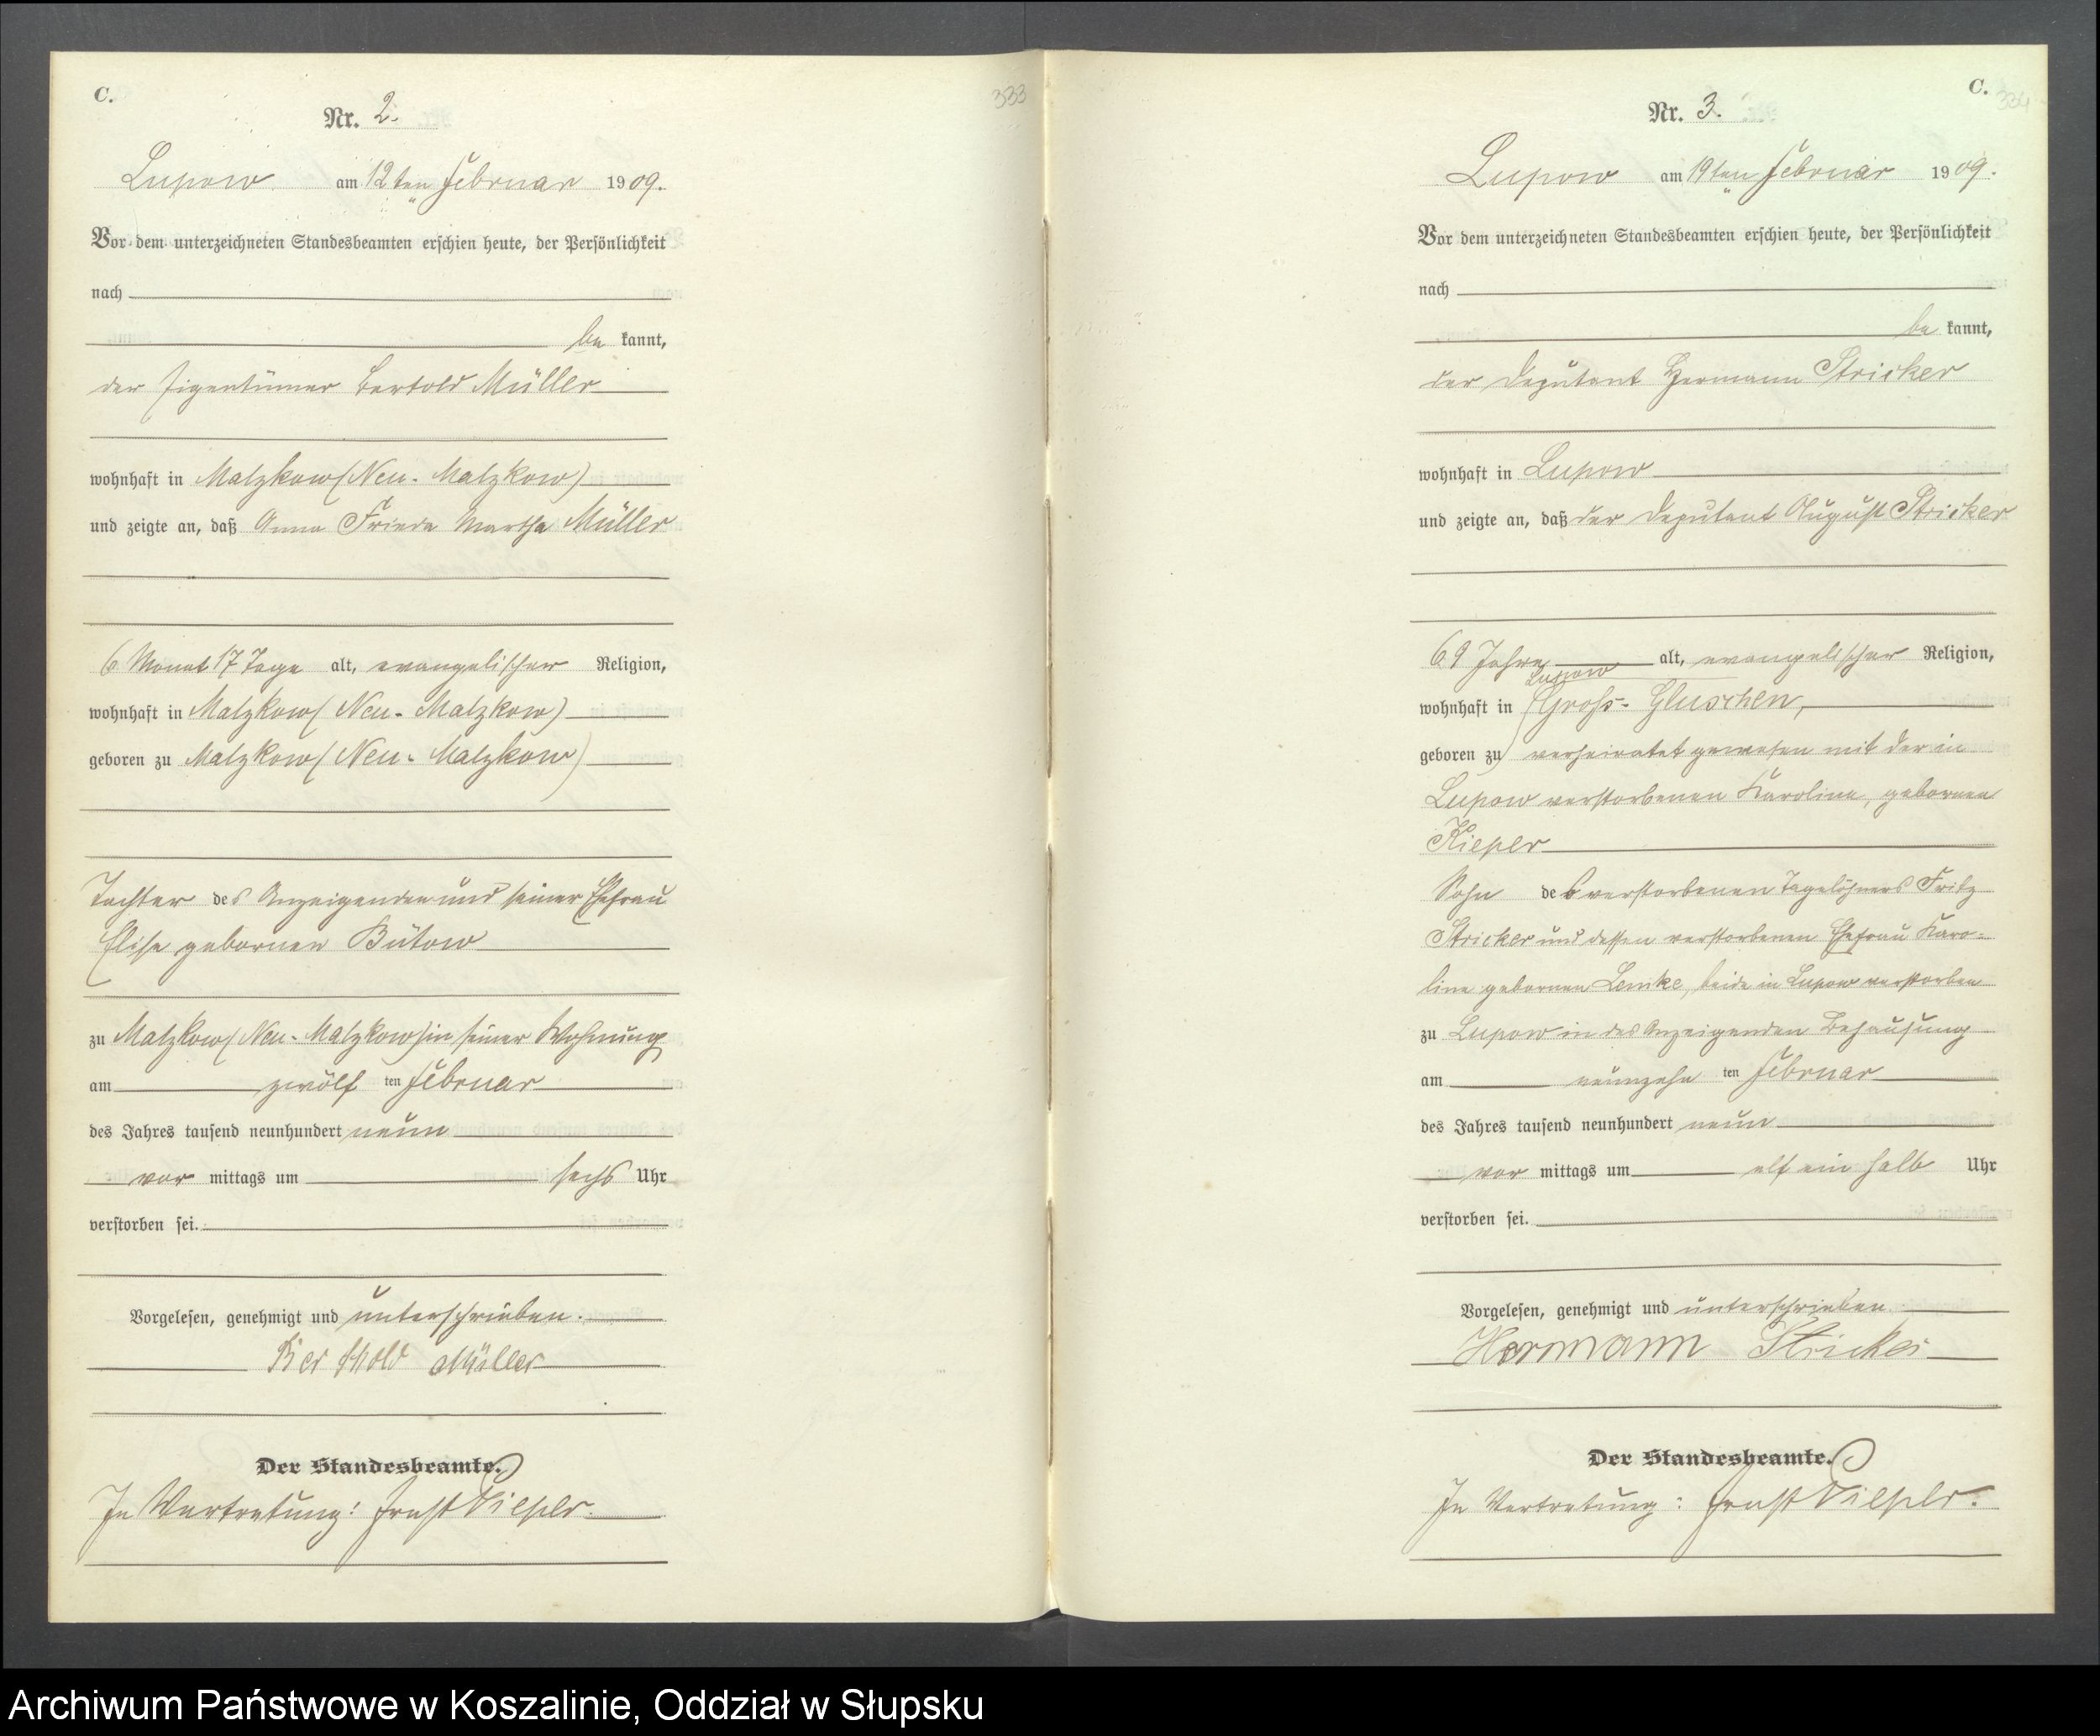 C.
333
Nr. 2.
Lupow am 12ten Februar 1909.
Vor dem unterzeichneten Standesbeamten erschien heute, der Persönlichkeit
nach
be kannt,
der Eigentümer Bertold Müller
wohnhaft in Malzkow (Neu-Malzkow)
und zeigte an, daß Anna Frieda Martha Müller
6 Monat 17 Tage alt, evangelischer Religion,
wohnhaft in Malzkow (Neu-Malzkow)
geboren zu Malzkow (Neu-Malzkow)
Tochter des Anzeigenden und seiner Ehefrau
Elise gebornen Bütow
zu Malzkow (Neu-Malzkow) in seiner Wohnung
am zwölf ten Februar
des Jahres tausend neunhundert neun
vor mittags um sechs Uhr
verstorben sei.
Vorgelesen, genehmigt und unterschrieben.
Berthold Müller
Der Standesbeamte.
In Vertretung: Ernst Pieper.
C.
334
Nr. 3.
Lupow am 19ten Februar 1909.
Vor dem unterzeichneten Standesbeamten erschien heute, der Persönlichkeit
nach
be kannt,
der Deputant Hermann Stricker
wohnhaft in Lupow
und zeigte an, daß der Deputant August Stricker
69 Jahre alt, evangelischer Religion,
Lupow
wohnhaft in (Groß-Gluschen,
geboren zu) verheiratet gewesen mit der in
Lupow verstorbenen Karoline, gebornen
Kieper
Sohn des verstorbenen Tagelöhners Fritz
Stricker und dessen verstorbenen Ehefrau Karo-
line gebornen Lemke, beide in Lupow verstorben
zu Lupow in des Anzeigenden Behausung
am neunzehn ten Februar
des Jahres tausend neunhundert neun
vor mittags um elf ein halb Uhr
verstorben sei.
Vorgelesen, genehmigt und unterschrieben
Hermann Stricker
Der Standesbeamte.
In Vertretung: Ernst Pieper.
Archiwum Państwowe w Koszalinie, Oddział w Słupsku